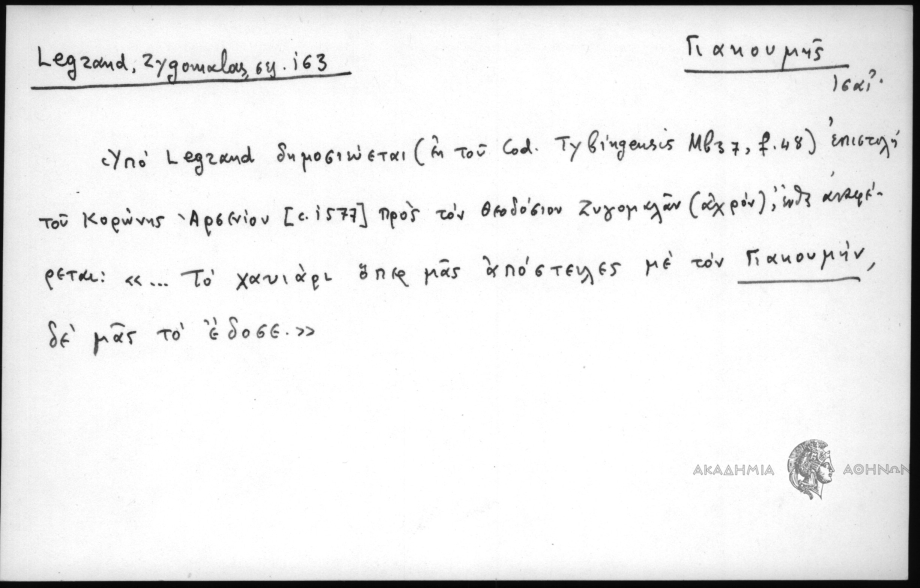 Legrand, Zygomalas, σελ. 163
Γιακουμῆς
Ὑπό Legrand δημοσιεύεται (ἐκ τοῦ Cod. Tybingensis Mb37, f. 48) ἐπιστολή
τοῦ Κορώνης Ἀρσενίου [c. 1577] πρὸς τόν Θεοδόσιον Ζυγομαλᾶν (ἄχρον), ἔνθα ἀναφέ-
ρεται: «... Τὸ χαυιάρι ὅπερ μᾶς ἀπόστειλες μὲ τὸν Γιακουμήν,
δὲ μᾶς τὸ ἔδοσε.»
ΑΚΑΔΗΜΙΑ ΑΘΗΝΩΝ